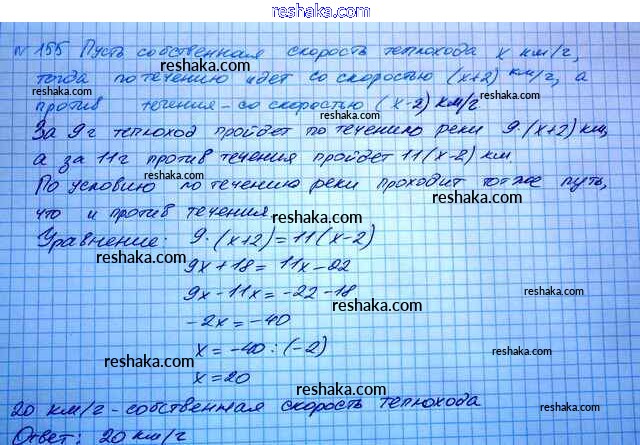 reshaka.com
№ 155 Пусть собственная скорость теплохода x км/г,
тогда по течению идет со скоростью (x+2) км/г, а
против течения - со скоростью (x-2) км/г
За 9г теплоход пройдет по течению реки 9·(x+2) км,
а за 11г против течения пройдет 11(x-2) км.
По условию по течению реки проходит тот же путь,
что и против течения
Уравнение: 9·(x+2)=11(x-2)
9x+18=11x-22
9x-11x=-22-18
-2x=-40
x=-40:(-2)
x=20
20 км/г - собственная скорость теплохода
Ответ: 20 км/г
reshaka.com
reshaka.com
reshaka.com
reshaka.com
reshaka.com
reshaka.com
reshaka.com
reshaka.com
reshaka.com
reshaka.com
reshaka.com
reshaka.com
reshaka.com
reshaka.com